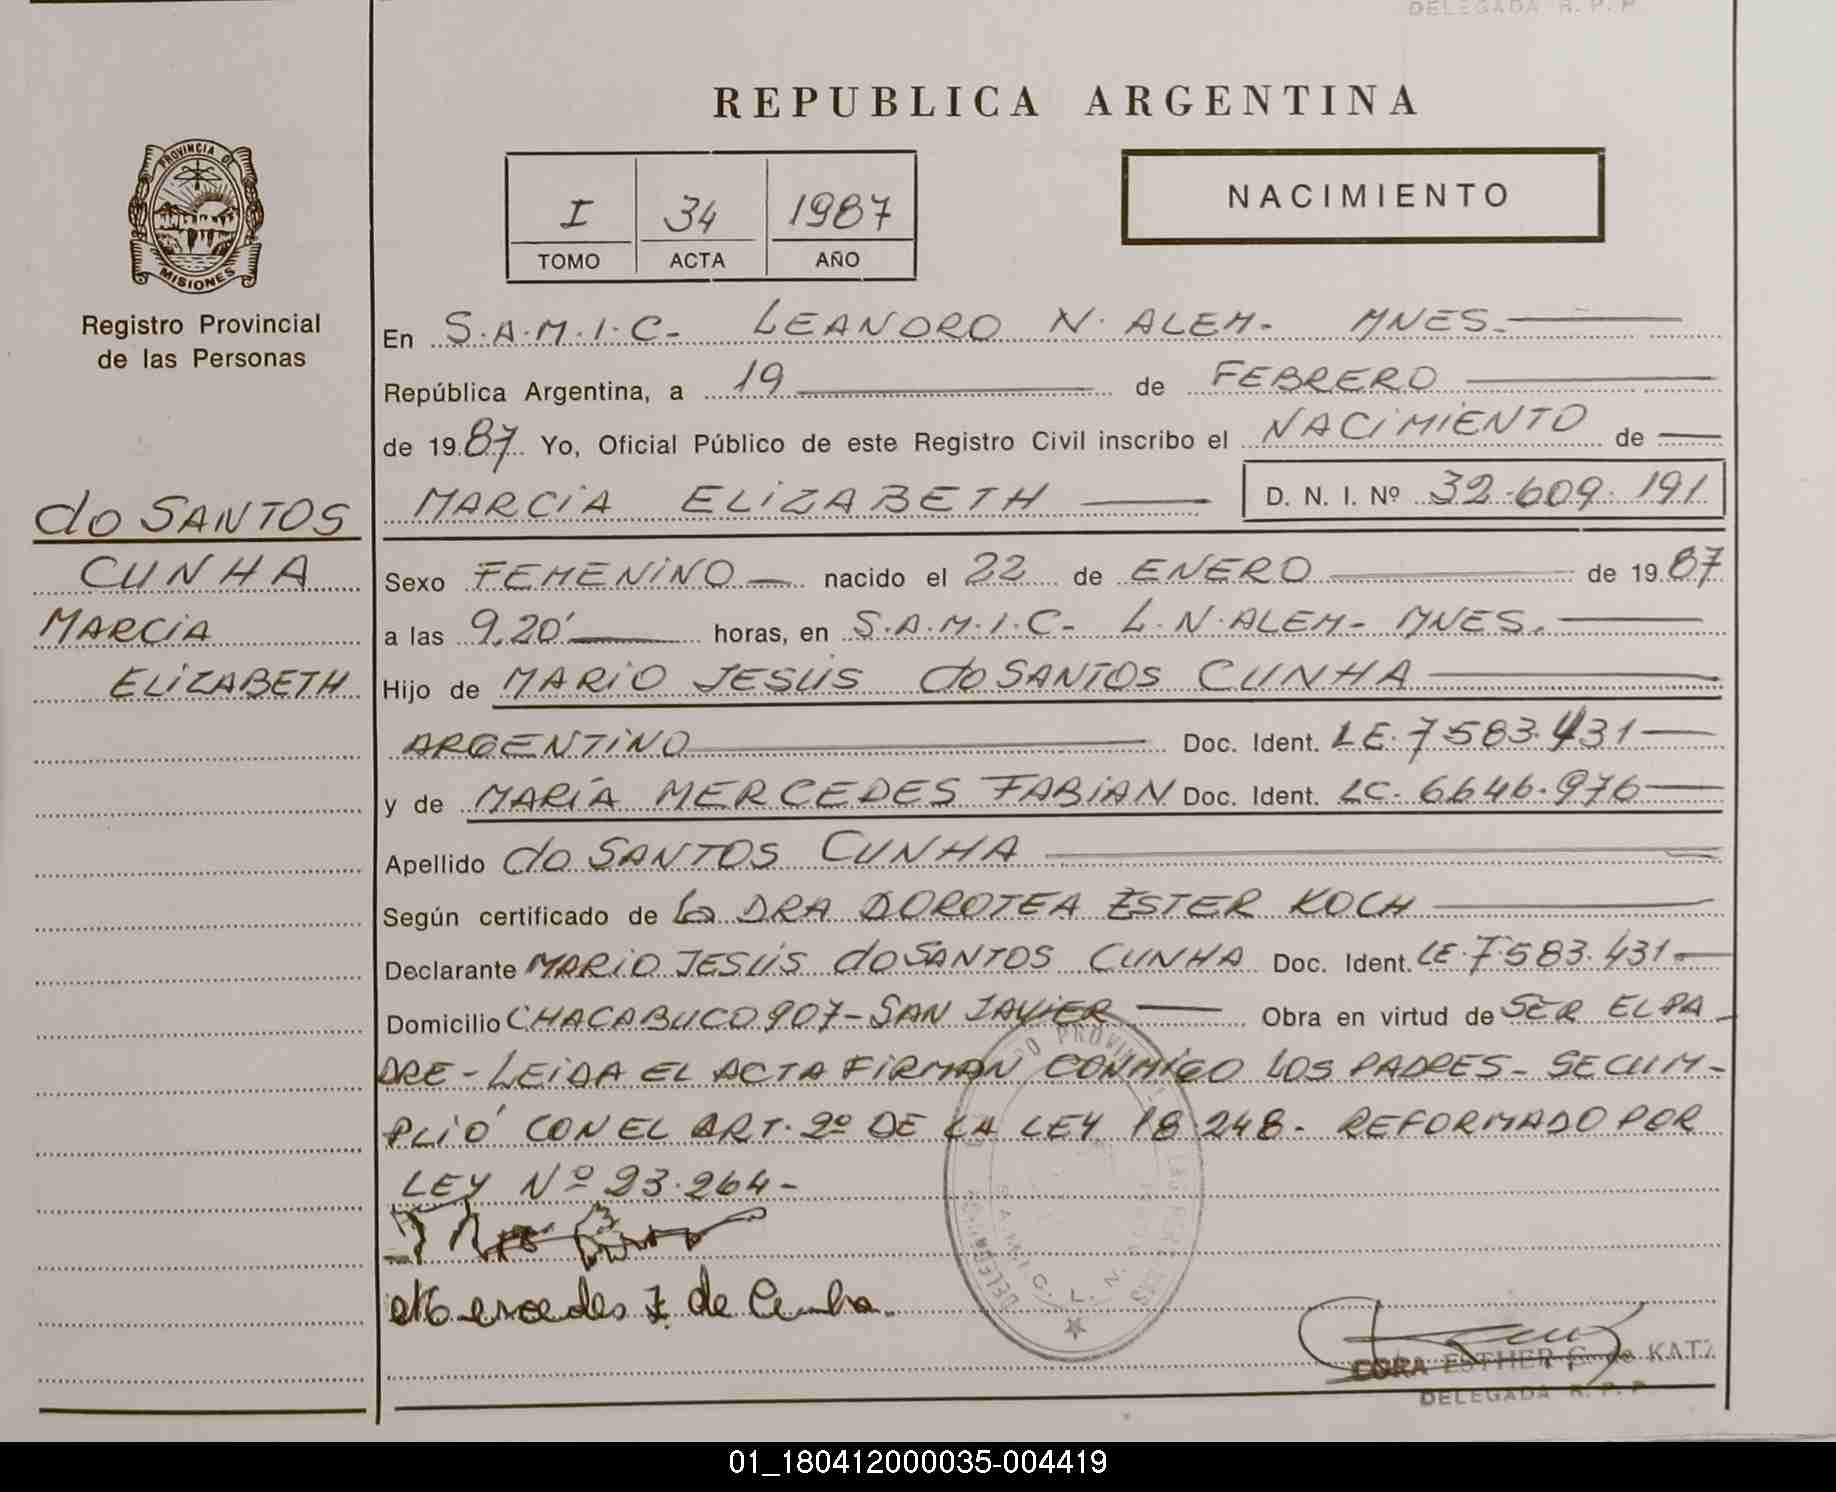 DELEGADA R. P. P.
REPUBLICA ARGENTINA
PROVINCIA DE
MISIONES
Registro Provincial
de las Personas
I 34 1987
TOMO ACTA AÑO
NACIMIENTO
En S.A.M.I.C- LEANDRO N. ALEM- MNES.
República Argentina, a 19 de FEBRERO
de 1987 Yo, Oficial Público de este Registro Civil inscribo el NACIMIENTO de
MARCIA ELIZABETH D. N. I. Nº 32.609.191
do SANTOS
CUNHA
MARCIA
ELIZABETH
Sexo FEMENINO nacido el 22 de ENERO de 1987
a las 9,20' horas, en S.A.M.I.C- L.N.ALEM- MNES.
Hijo de MARIO JESÚS do SANTOS CUNHA
ARGENTINO Doc. Ident. LE.7583.431
y de MARÍA MERCEDES FABIAN Doc. Ident. LC. 6646.976
Apellido do SANTOS CUNHA
Según certificado de La DRA DOROTEA ESTER KOCH
Declarante MARIO JESÚS do SANTOS CUNHA Doc. Ident. LE.7583.431
Domicilio CHACABUCO 907-SAN JAVIER Obra en virtud de SER EL PA
DRE-LEIDA EL ACTA FIRMAN CONMIGO LOS PADRES- SE CUM-
PLIÓ CON EL ART. 2º DE LA LEY 18.248- REFORMADO POR
LEY Nº 23.264-
Mercedes F. de Cunha
CORA ESTHER G. de KATZ
DELEGADA R. P. P.
01_180412000035-004419